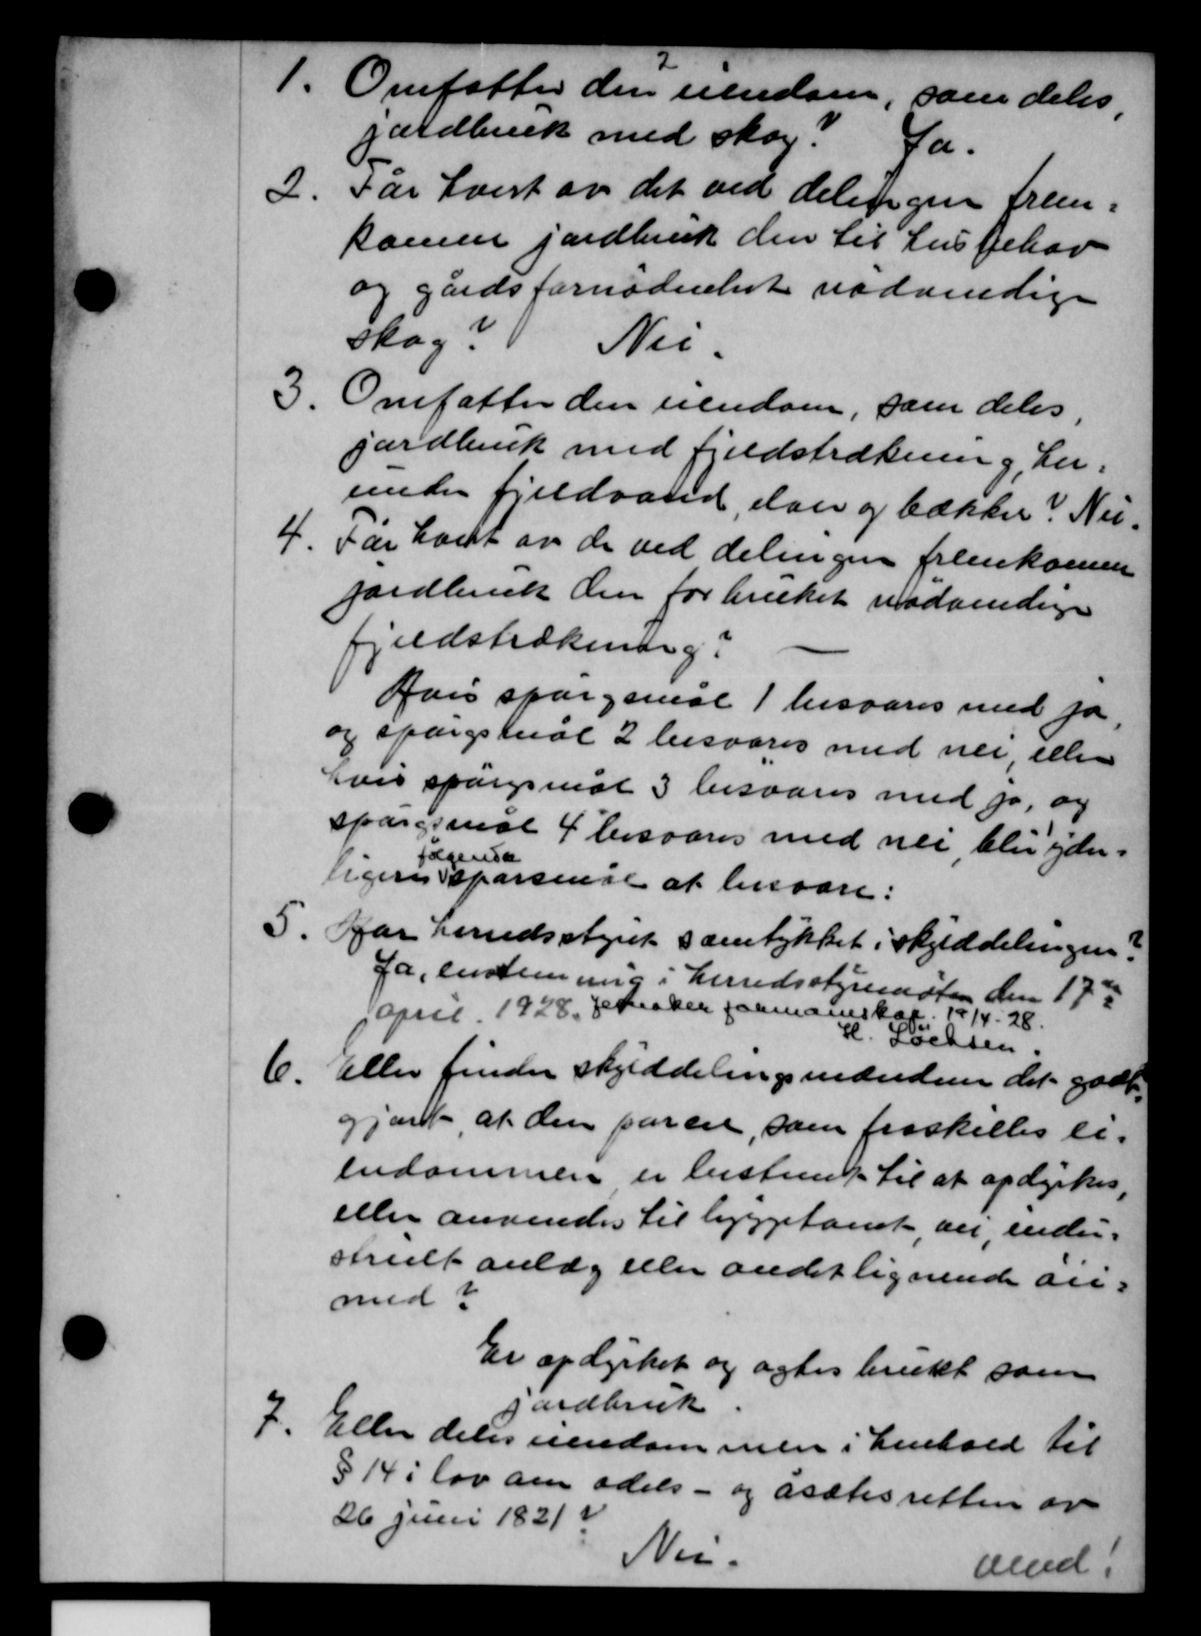 2
1. Omfatter den eiendom, som deles,
jordbruk med skog? Ja.
2. Får hvert av det ved delingen frem-
komne jordbruk den til husbehov
og gårdsfornødenhet nødvendige
skog? Nei.
3. Omfatter den eiendom, som deles,
jordbruk med fjeldstrækning, her-
under fjeldvand, elver og bækker? Nei.
4. Får hvert av de ved delingen fremkomne
jordbruk den for bruket nødvendige
fjeldstrækning? —
Hvis spørgsmål 1 besvares med ja,
og spørgsmål 2 besvares med nei, eller
hvis spørgsmål 3 besvares med ja, og
spørgsmål 4 besvares med nei, blir yder-
ligere følgende spørsmål at besvare:
5. Har herredsstyret samtykket i skylddelingen?
Ja, enstemmig i herredsstyremøte den 17de
april 1928. formannskap. 19/4-28.
H. Løchsen.
6. Eller finder skylddelingsmændene det godt-
gjort, at den parcel, som fraskilles ei-
endommen er bestemt til at opdyrkes,
eller anvendes til byggetomt, vei, indu-
strielt anlæg eller andet lignende øie-
med?
Er opdyrket og agtes brukt som
jordbruk.
7. Eller deles eiendommen i henhold til
§ 14 i lov om odels- og åsætesretten av
26 juni 1821?
Nei.
vend!